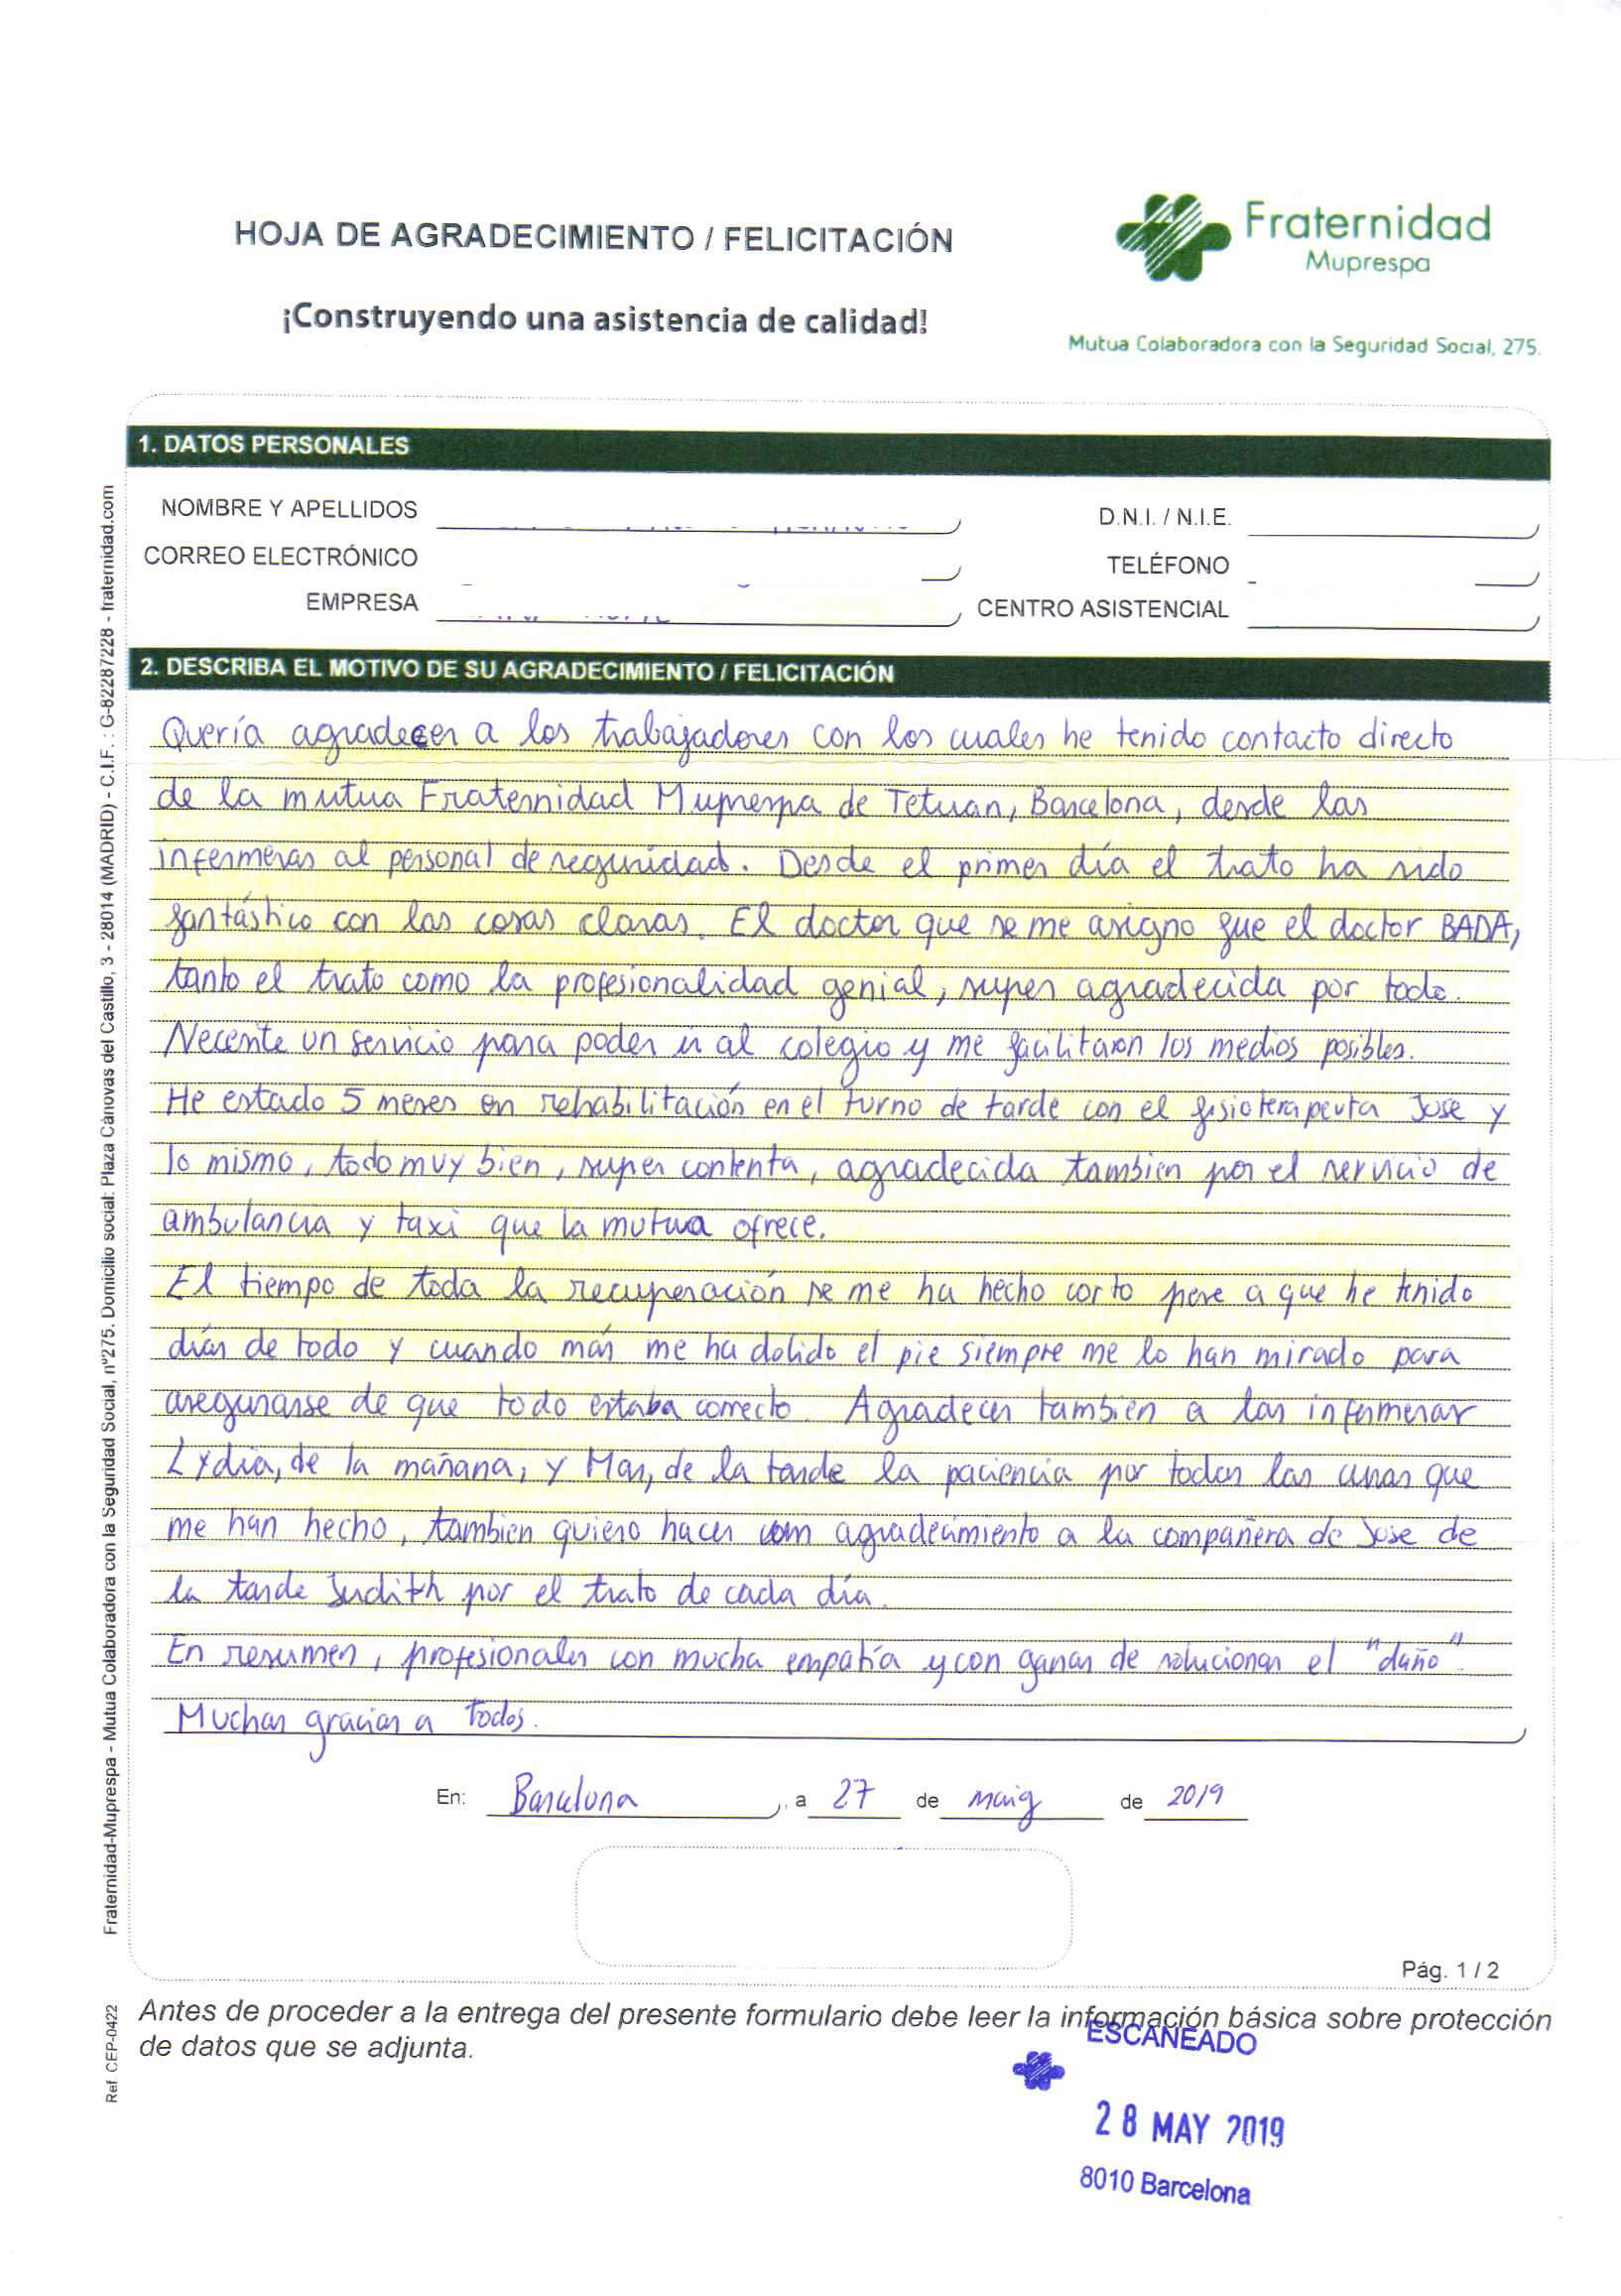 HOJA DE AGRADECIMIENTO / FELICITACIÓN
¡Construyendo una asistencia de calidad!
Fraternidad
Muprespa
Mutua Colaboradora con la Seguridad Social, 275.
1. DATOS PERSONALES
NOMBRE Y APELLIDOS
D.N.I. / N.I.E.
CORREO ELECTRÓNICO
TELÉFONO
EMPRESA
CENTRO ASISTENCIAL
2. DESCRIBA EL MOTIVO DE SU AGRADECIMIENTO / FELICITACIÓN
Quería agradecer a los trabajadores con los cuales he tenido contacto directo
de la mutua Fraternidad Muprespa de Tetuan, Barcelona, desde las
infermeras al personal de seguridad. Desde el primer día el trato ha sido
fantástico con las cosas claras. El doctor que se me asigno fue el doctor BADA,
tanto el trato como la profesionalidad genial, super agradecida por todo.
Necesite un servicio para poder ir al colegio y me facilitaron los medios posibles.
He estado 5 meses en rehabilitación en el turno de tarde con el fisioterapeuta Jose y
lo mismo, todo muy bien, super contenta, agradecida tambien por el servicio de
ambulancia y taxi que la mutua ofrece.
El tiempo de toda la recuperación se me ha hecho corto pese a que he tenido
días de todo y cuando más me ha dolido el pie siempre me lo han mirado para
asegurarse de que todo estaba correcto. Agradecer tambien a las infermeras
Lydia, de la mañana, y Mar, de la tarde la paciencia por todas las curas que
me han hecho, tambien quiero hacer agradecimiento a la compañera de Jose de
la tarde Judith por el trato de cada día.
En resumen, profesionales con mucha empatía y con ganas de solucionar el "daño".
Muchas gracias a todos.
En: Barcelona, a 27 de maig de 2019
Pág. 1 / 2
Antes de proceder a la entrega del presente formulario debe leer la información básica sobre protección
de datos que se adjunta.
ESCANEADO
28 MAY 2019
8010 Barcelona
Fraternidad-Muprespa - Mutua Colaboradora con la Seguridad Social, nº275. Domicilio social: Plaza Cánovas del Castillo, 3 - 28014 (MADRID) - C.I.F. : G-82287228 - fraternidad.com
Ref CEP-0422